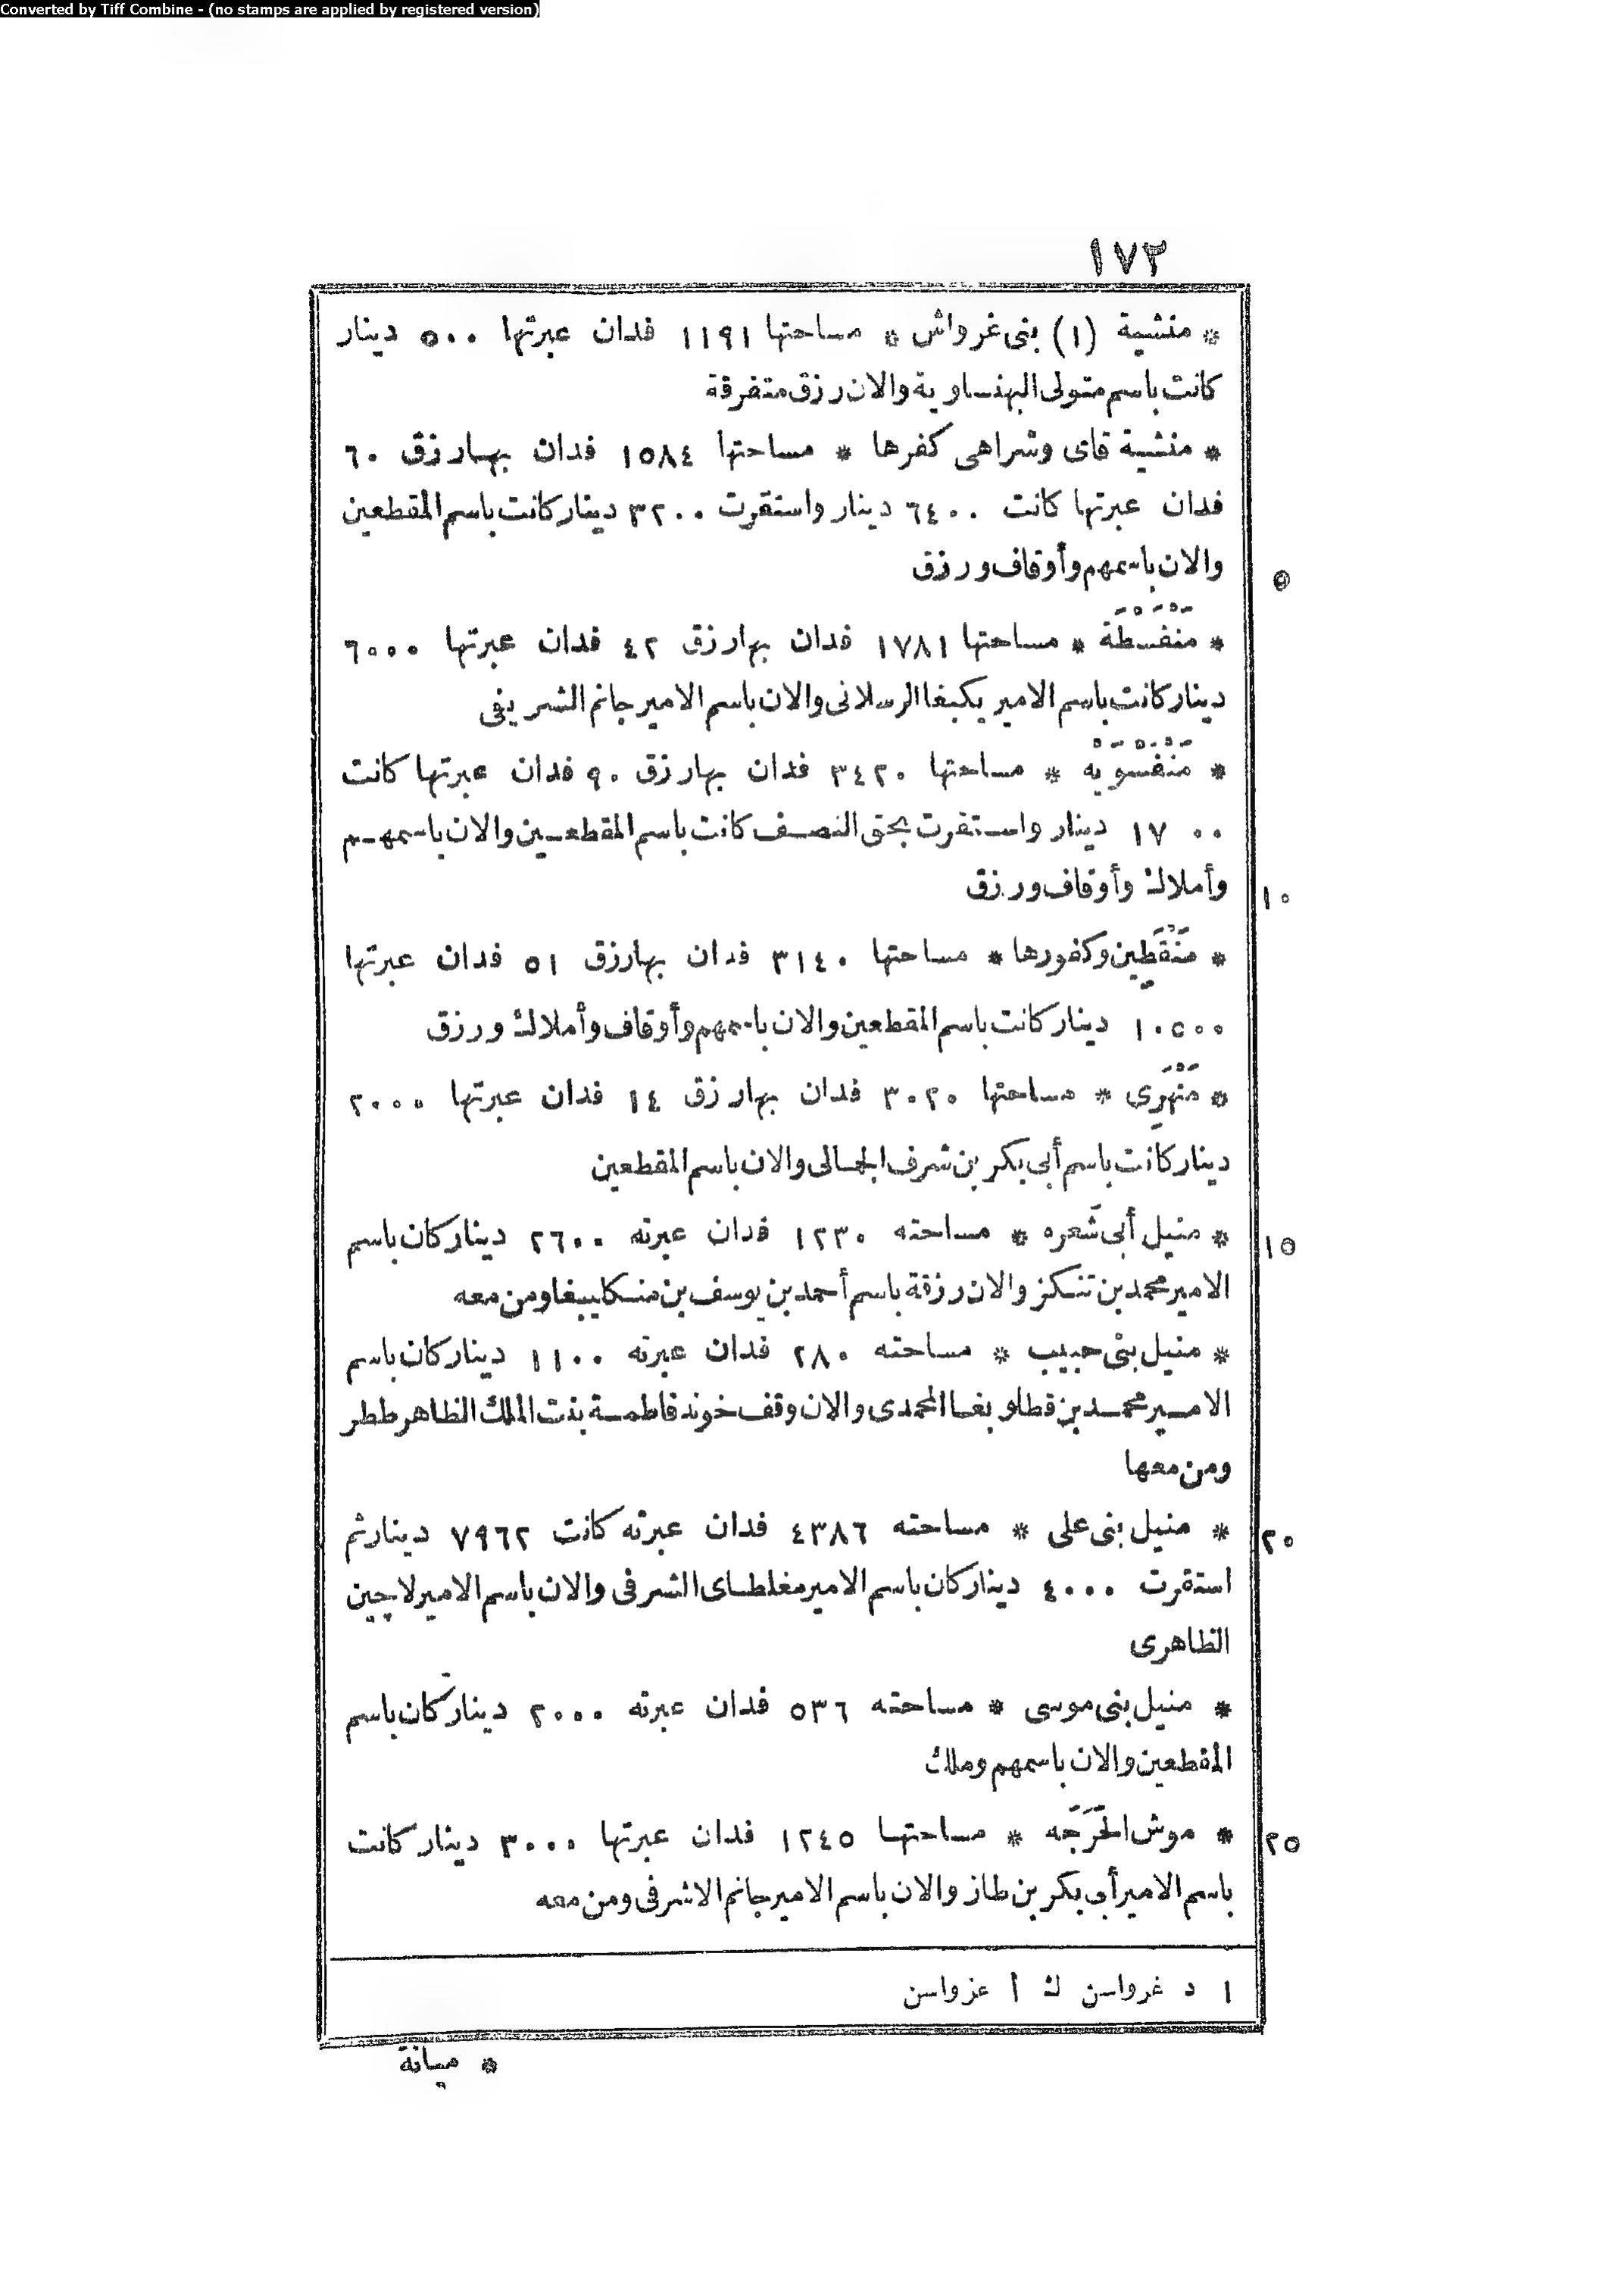 Converted by Tiff Combine - (no stamps are applied by registered version)
١٧٢
* منشية (١) بنى غرواش * مساحتها ١١٩١ فدان عبرتها ٥٠٠ دينار
كانت باسم متولى البهنساوية والان رزق متفرقة
* منشية قاى وشراهى كفرها * مساحتها ١٥٨٤ فدان بها رزق ٦٠
فدان عبرتها كانت ٦٤٠٠ دينار واستقرت ٣٢٠٠ دينار كانت باسم المقطعين
والان باسمهم وأوقاف ورزق
٥
* مَنْفَسْطَة * مساحتها ١٧٨١ فدان بها رزق ٤٢ فدان عبرتها ٦٠٠٠
دينار كانت باسم الامير يكبغا الرسلانى والان باسم الامير جانم الشريفى
* مَنْفَسْوَيْه * مساحتها ٣٤٢٠ فدان بها رزق ٩٠ فدان عبرتها كانت
١٧٠٠ دينار واستقرت بحق النصف كانت باسم المقطعين والان باسمهم
وأملاك وأوقاف ورزق
١٠
* مَنْقَطِين وكفورها * مساحتها ٣١٤٠ فدان بها رزق ٥١ فدان عبرتها
١٠٥٠٠ دينار كانت باسم المقطعين والان باسمهم وأوقاف وأملاك ورزق
* مَنْهَرِى * مساحتها ٣٠٢٠ فدان بها رزق ١٤ فدان عبرتها ٢٠٠٠
دينار كانت باسم أبى بكر بن شرف الجمالى والان باسم المقطعين
* منيل أبى شَعره * مساحته ١٢٣٠ فدان عبرته ٢٦٠٠ دينار كان باسم
١٥
الامير محمد بن تنكز والان رزقة باسم أحمد بن يوسف بن منكليبغا ومن معه
* منيل بنى حبيب * مساحته ٢٨٠ فدان عبرته ١١٠٠ دينار كان باسم
الامير محمد بن قطلوبغا المحمدى والان وقف خوند فاطمة بنت الملك الظاهر ططر
ومن معها
* منيل بنى على * مساحته ٤٣٨٦ فدان عبرته كانت ٧٩٦٢ دينار ثم
٢٠
استقرت ٤٠٠٠ دينار كان باسم الامير مغلطاى الشرفى والان باسم الامير لاجين
الظاهرى
* منيل بنى موسى * مساحته ٥٣٦ فدان عبرته ٢٠٠٠ دينار كان باسم
المقطعين والان باسمهم وملك
* موش الحَرَجَه * مساحتها ١٢٤٥ فدان عبرتها ٣٠٠٠ دينار كانت
٢٥
باسم الامير أبى بكر بن طاز والان باسم الامير جانم الاشرفى ومن معه
١ د غرواسن ك أ عزواسن
* ميانة